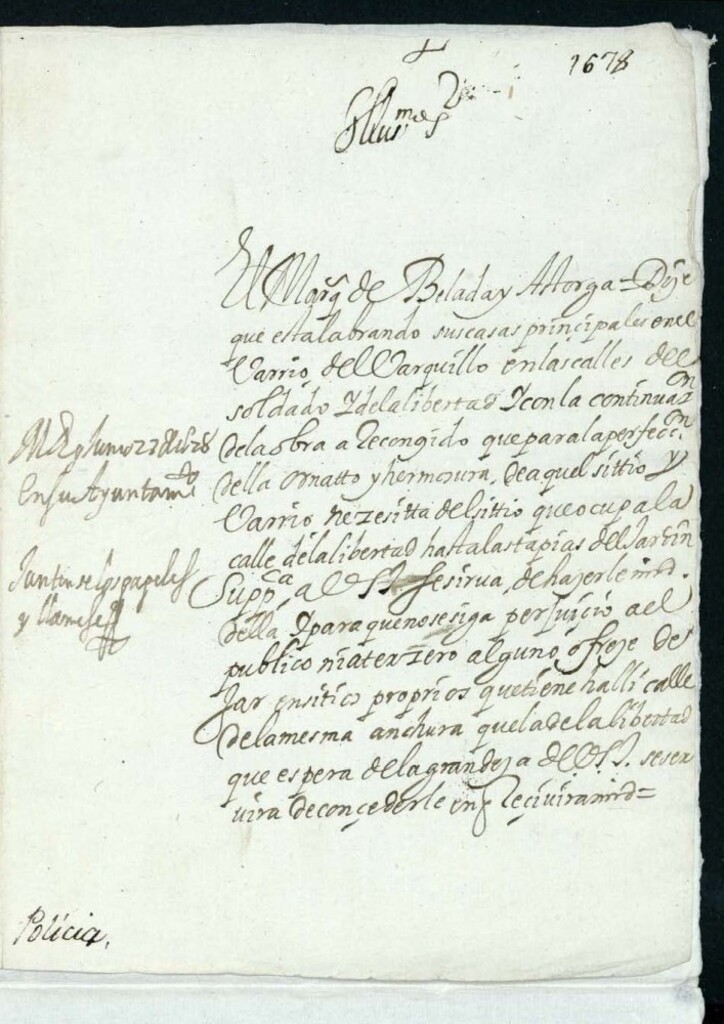 1678
Illus.mo S.r
El Marq de Belada y Astorga = Dize
que esta labrando sus casas principales en el
Varrio del Varquillo en las calles del
soldado y de la libertad y con la continuaz.on
de la obra a Recongido que para la perfecc.on
della ornatto y hermosura, de aquel sittio y
Varrio nezesitta del sitio que ocupa la
calle de la libertad hasta las tapias del Jardin
Supp.ca a VSI. se sirua, de hazerle mrd.
della y para que no se siga perjuicio a el
publico ni a terzero alguno, ofreze de
Jar en sitios proprios que tiene halli calle
de la mesma anchura que la de la libertad
que espera de la grandeza de VSI. se ser
uira de concederle en q Reciuira mrd =
En su Ayuntam.to
Juntense los papeles
y llamese
Policia.